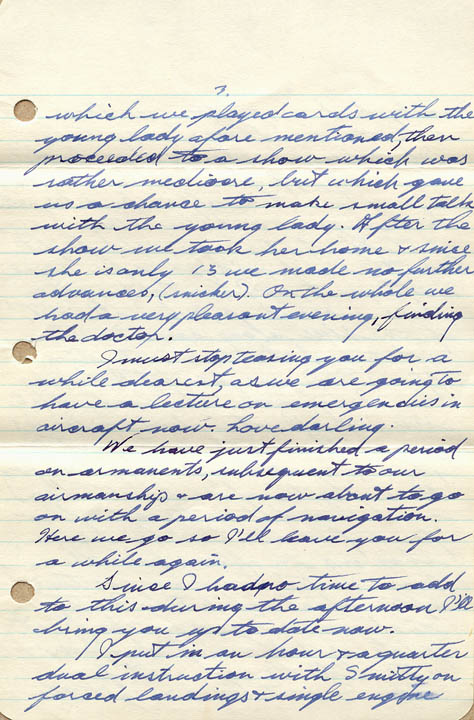 3.
which we played cards with the
young lady afore mentioned, then
proceeded to a show which was
rather mediocre, but which gave
us a chance to make small talk
with the young lady. After the
show we took her home & snice
she is only 13 we made no further
advances, (snicker). On the whole we
had a very pleasant evening, finding
the doctor.
I must stop teasing you for a
while dearest, as we are going to
have a lecture on emergencies in
aircraft now. Love darling.
We have just finished a period
on armanents, subsequent to our
airmanship & are now about to go
on with a period of navigation.
Here we go so I'll leave you for
a while again.
Since I had no time to add
to this during the afternoon I'll
bring you up to date now.
I put in an hour & a quarter
dual instruction with Smitty on
forced landings & single engine